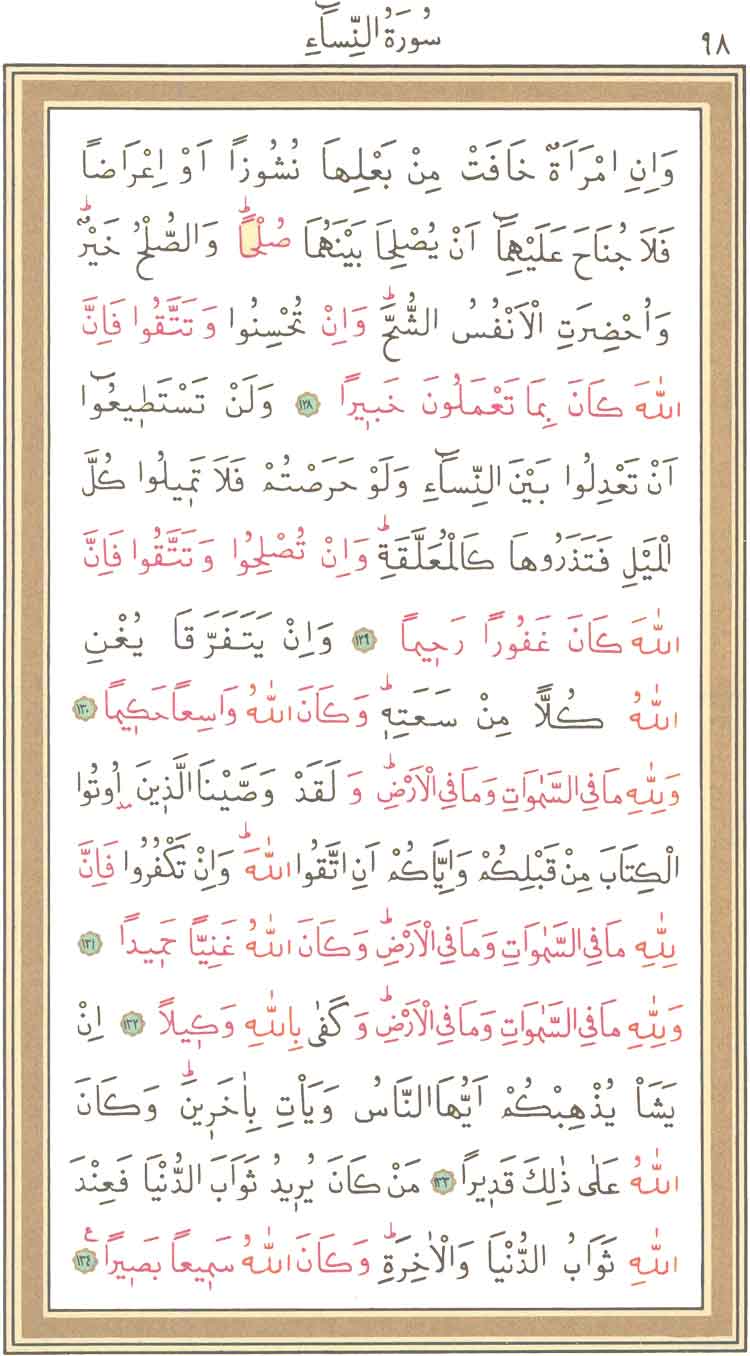 ٩٨ سُورَةُ النِّسَٓاءِ
وَاِنِ امْرَاَةٌ خَافَتْ مِنْ بَعْلِهَا نُشُوزًا اَوْ اِعْرَاضًا
فَلَا جُنَاحَ عَلَيْهِمَٓا اَنْ يُصْلِحَا بَيْنَهُمَا صُلْحًاۜ وَالصُّلْحُ خَيْرٌۜ
وَاُحْضِرَتِ الْاَنْفُسُ الشُّحَّۜ وَاِنْ تُحْسِنُوا وَتَتَّقُوا فَاِنَّ
اللّٰهَ كَانَ بِمَا تَعْمَلُونَ خَبٖيرًا ١٢٨ وَلَنْ تَسْتَطٖيعُٓوا
اَنْ تَعْدِلُوا بَيْنَ النِّسَٓاءِ وَلَوْ حَرَصْتُمْ فَلَا تَمٖيلُوا كُلَّ
الْمَيْلِ فَتَذَرُوهَا كَالْمُعَلَّقَةِۜ وَاِنْ تُصْلِحُوا وَتَتَّقُوا فَاِنَّ
اللّٰهَ كَانَ غَفُورًا رَحٖيمًا ١٢٩ وَاِنْ يَتَفَرَّقَا يُغْنِ
اللّٰهُ كُلًّا مِنْ سَعَتِهٖۜ وَكَانَ اللّٰهُ وَاسِعًا حَكٖيمًا ١٣٠
وَلِلّٰهِ مَا فِي السَّمٰوَاتِ وَمَا فِي الْاَرْضِۜ وَلَقَدْ وَصَّيْنَا الَّذٖينَ اُوتُوا
الْكِتَابَ مِنْ قَبْلِكُمْ وَاِيَّاكُمْ اَنِ اتَّقُوا اللّٰهَۜ وَاِنْ تَكْفُرُوا فَاِنَّ
لِلّٰهِ مَا فِي السَّمٰوَاتِ وَمَا فِي الْاَرْضِۜ وَكَانَ اللّٰهُ غَنِيًّا حَمٖيدًا ١٣١
وَلِلّٰهِ مَا فِي السَّمٰوَاتِ وَمَا فِي الْاَرْضِۜ وَكَفٰى بِاللّٰهِ وَكٖيلًا ١٣٢ اِنْ
يَشَأْ يُذْهِبْكُمْ اَيُّهَا النَّاسُ وَيَأْتِ بِاٰخَرٖينَۜ وَكَانَ
اللّٰهُ عَلٰى ذٰلِكَ قَدٖيرًا ١٣٣ مَنْ كَانَ يُرٖيدُ ثَوَابَ الدُّنْيَا فَعِنْدَ
اللّٰهِ ثَوَابُ الدُّنْيَا وَالْاٰخِرَةِۜ وَكَانَ اللّٰهُ سَمٖيعًا بَصٖيرًا ع ١٣٤